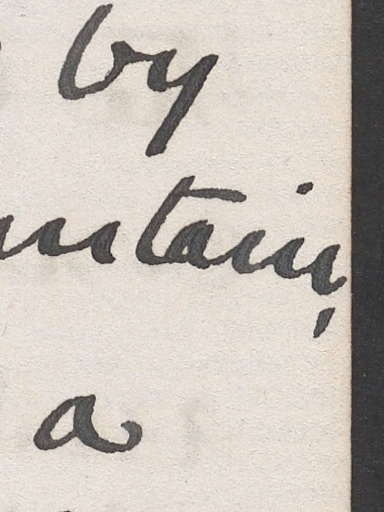 by
untain,
a